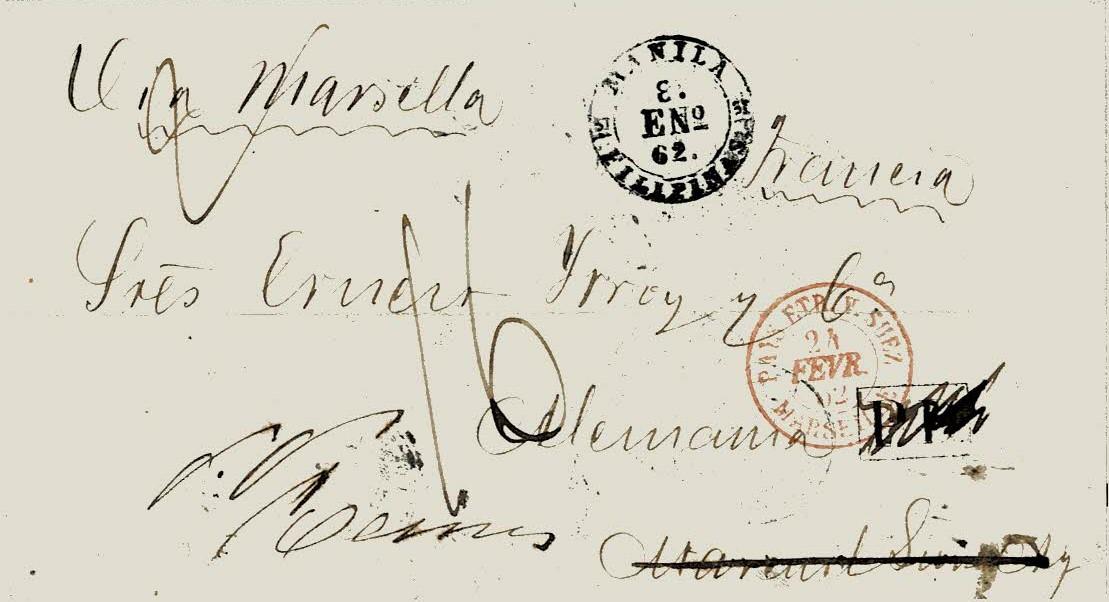 Via Marsella
MANILA
8.
ENº
62.
FILIPINAS
Francia
Sres Ernest Yrroy y Cª
PAQ. ETR. V. SUEZ
24
FEVR.
62
MARSEILLE
16
Alemania
P.P.
Reims